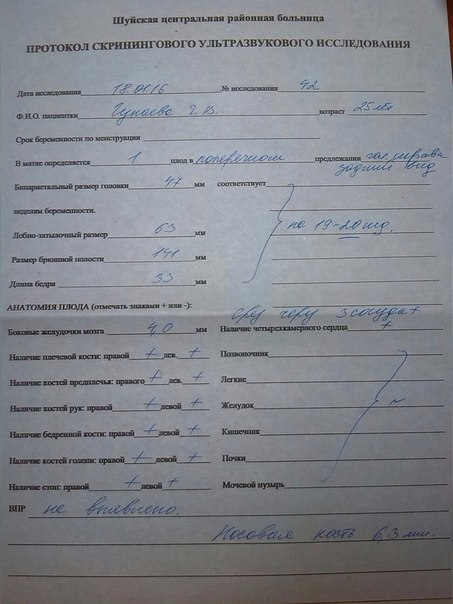 Шуйская центральная районная больница
ПРОТОКОЛ СКРИНИНГОВОГО УЛЬТРАЗВУКОВОГО ИССЛЕДОВАНИЯ
Дата исследования 18.01.16 № исследования 42
Ф.И.О. пациентки Е. В. возраст 25 лет
Срок беременности по менструации
В матке определяется 1 плод в поперечном предлежании гол. справа
задний вид
Бипариетальный размер головки 47 мм соответствует
неделям беременности.
Лобно-затылочный размер 63 мм на 19-20 нед.
Размер брюшной полости 141 мм
Длина бедра 33 мм
АНАТОМИЯ ПЛОДА (отмечать знаками + или -): срез через 3 сосуда +
Боковые желудочки мозга 4,0 мм Наличие четырехкамерного сердца +
Наличие плечевой кости: правой + лев. + Позвоночник
Наличие костей предплечья: правого + лев. + Легкие
Наличие костей рук: правой + левой + Желудок N
Наличие бедренной кости: правой + левой + Кишечник
Наличие костей голени: правой + левой + Почки
Наличие стоп: правой + левой + Мочевой пузырь
ВПР не выявлено.
Носовая кость 6,3 мм.